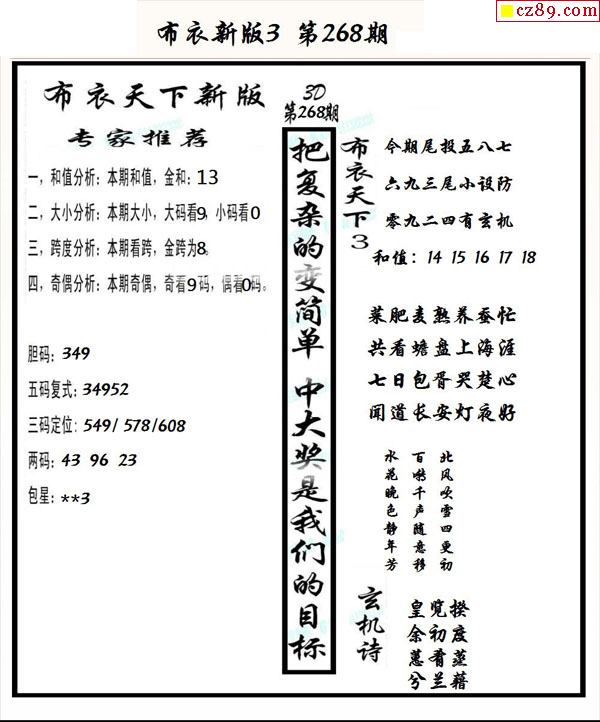 cz89.com
布衣新版3 第268期
布衣天下新版
专家推荐
一，和值分析：本期和值，金和：13
二，大小分析：本期大小，大码看9，小码看0
三，跨度分析：本期看跨，金跨为8。
四，奇偶分析：本期奇偶，奇看9码，偶看0码。
胆码：349
五码复式：34952
三码定位：549/ 578/608
两码：43 96 23
包星：**3
3D
第268期
把复杂的变简单 中大奖是我们的目标
布衣天下3
今期尾投五八七
六九三尾小设防
零九二四有玄机
和值：14 15 16 17 18
菜肥麦熟养蚕忙
共看蟾盘上海涯
七日包胥哭楚心
闻道长安灯夜好
北风吹雪四更初
百啭千声随意移
水花晚色静年芳
玄机诗
皇览揆
余初度
蕙肴蒸
兮兰藉